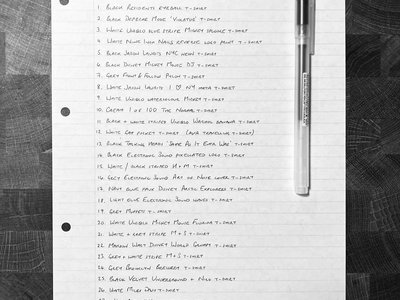 1. Black Residents eyeball T-shirt
2. Black Depeche Mode 'Violator' T-shirt
3. White Uniqlo blue stripe Mickey square T-shirt
4. White Nine Inch Nails reverse logo print T-shirt
5. Black Jason Laurits NYC neon T-shirt
6. Black Disney Mickey Mouse DJ T-shirt
7. Grey Front & Follow Pilot T-shirt
8. White Jason Laurits I ♡ NY T-shirt
9. White Uniqlo watercolour Mickey T-shirt
10. Cream 1 of 100 The Normal T-shirt
11. Black + white stripes Uniqlo Warhol banana T-shirt
12. White Gap pocket T-shirt (aka Travelling T-shirt)
13. Black Talking Heads 'Same As It Ever Was' T-shirt
14. Black Electronic Sound pixelated logo T-shirt
15. White / black striped H+M T-shirt
16. Grey Electronic Sound Art of Noise cover T-shirt
17. Navy blue faux Disney Arctic Explorers T-shirt
18. Light blue Electronic Sound waves T-shirt
19. Grey Muppets T-shirt
20. White Uniqlo Mickey Mouse Florida T-shirt
21. White + grey stripe M+S T-shirt
22. Maroon Walt Disney World Grumpy T-shirt
23. Grey + white stripe M+S T-shirt
24. Grey Brooklyn Bershka T-shirt
25. Black Velvet Underground + Nico T-shirt
26. White Miles Davis T-shirt